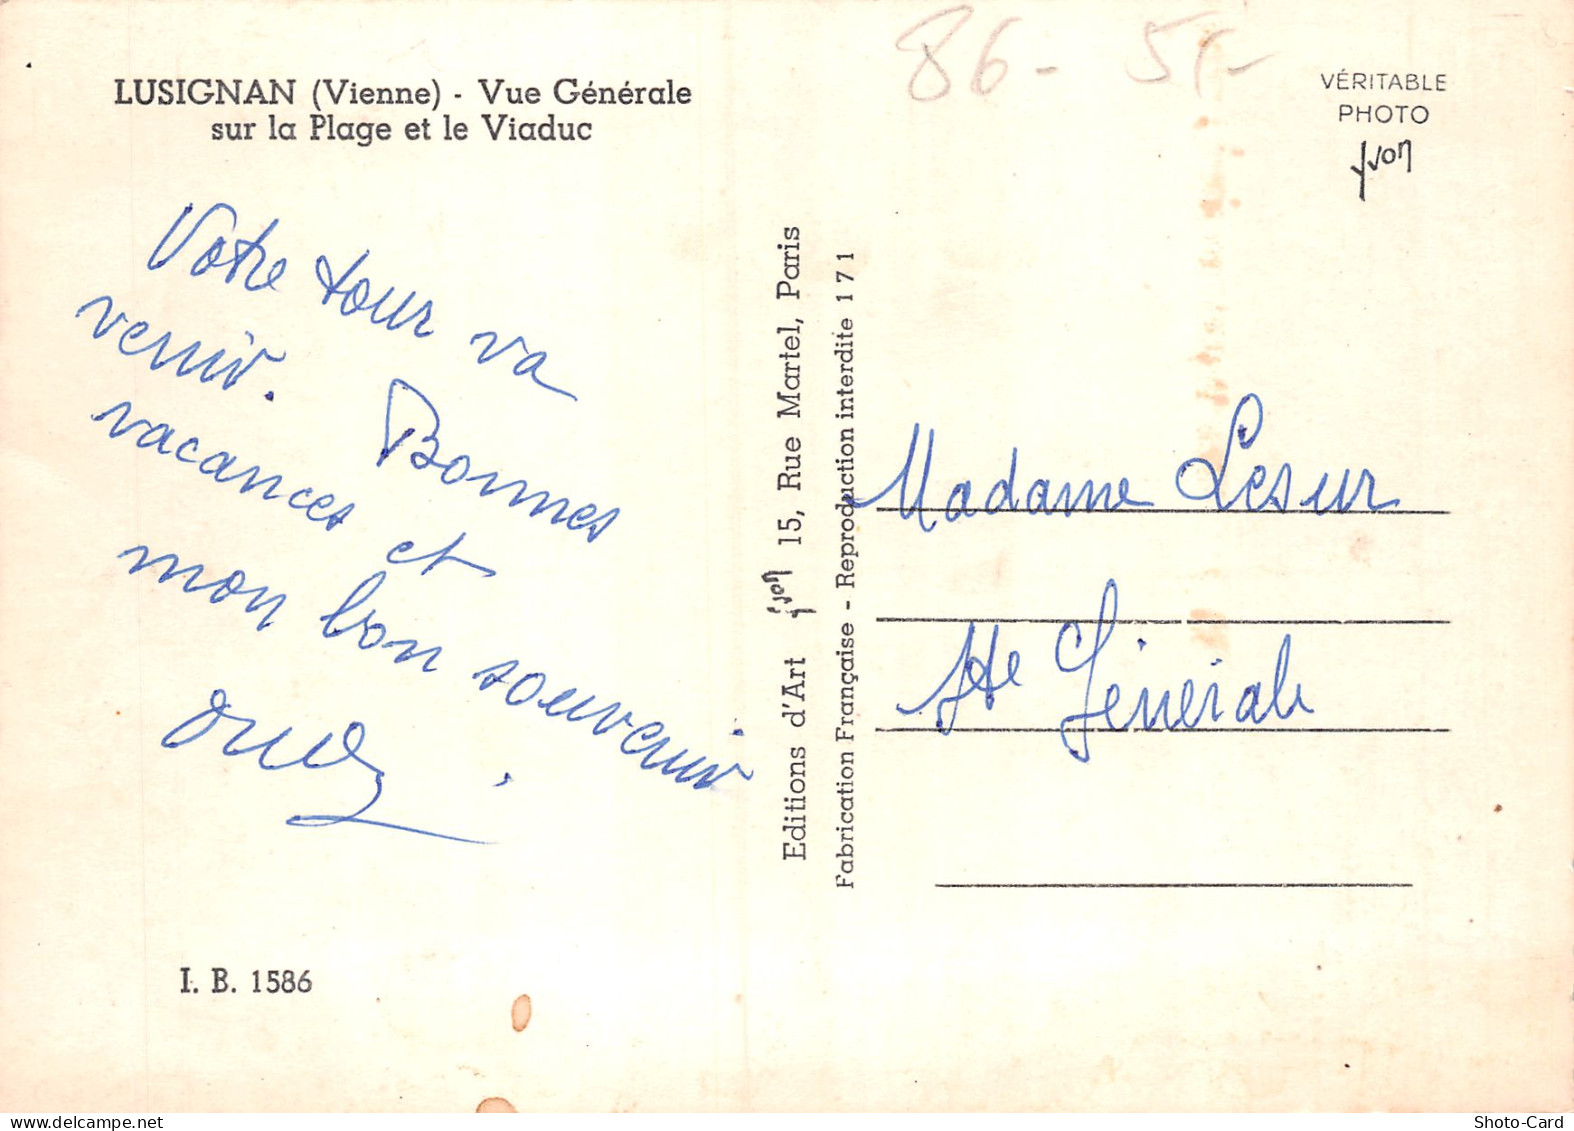 LUSIGNAN (Vienne) - Vue Générale
sur la Plage et le Viaduc
Votre tour va
venir. Bonnes
vacances et
mon bon souvenir
I. B. 1586
Editions d'Art yvon 15, Rue Martel, Paris
Fabrication Française - Reproduction interdite 171
86 - 5
VÉRITABLE
PHOTO
yvon
Madame Lesur
Sté Générale
www.delcampe.net
Shoto-Card